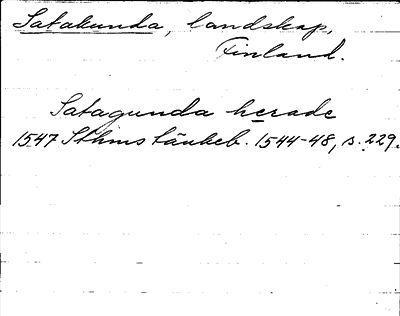 Satakunda, landskap,
Finland.
Satagunda herade
1547 Sthms tänkeb. 1544-48, s. 229.